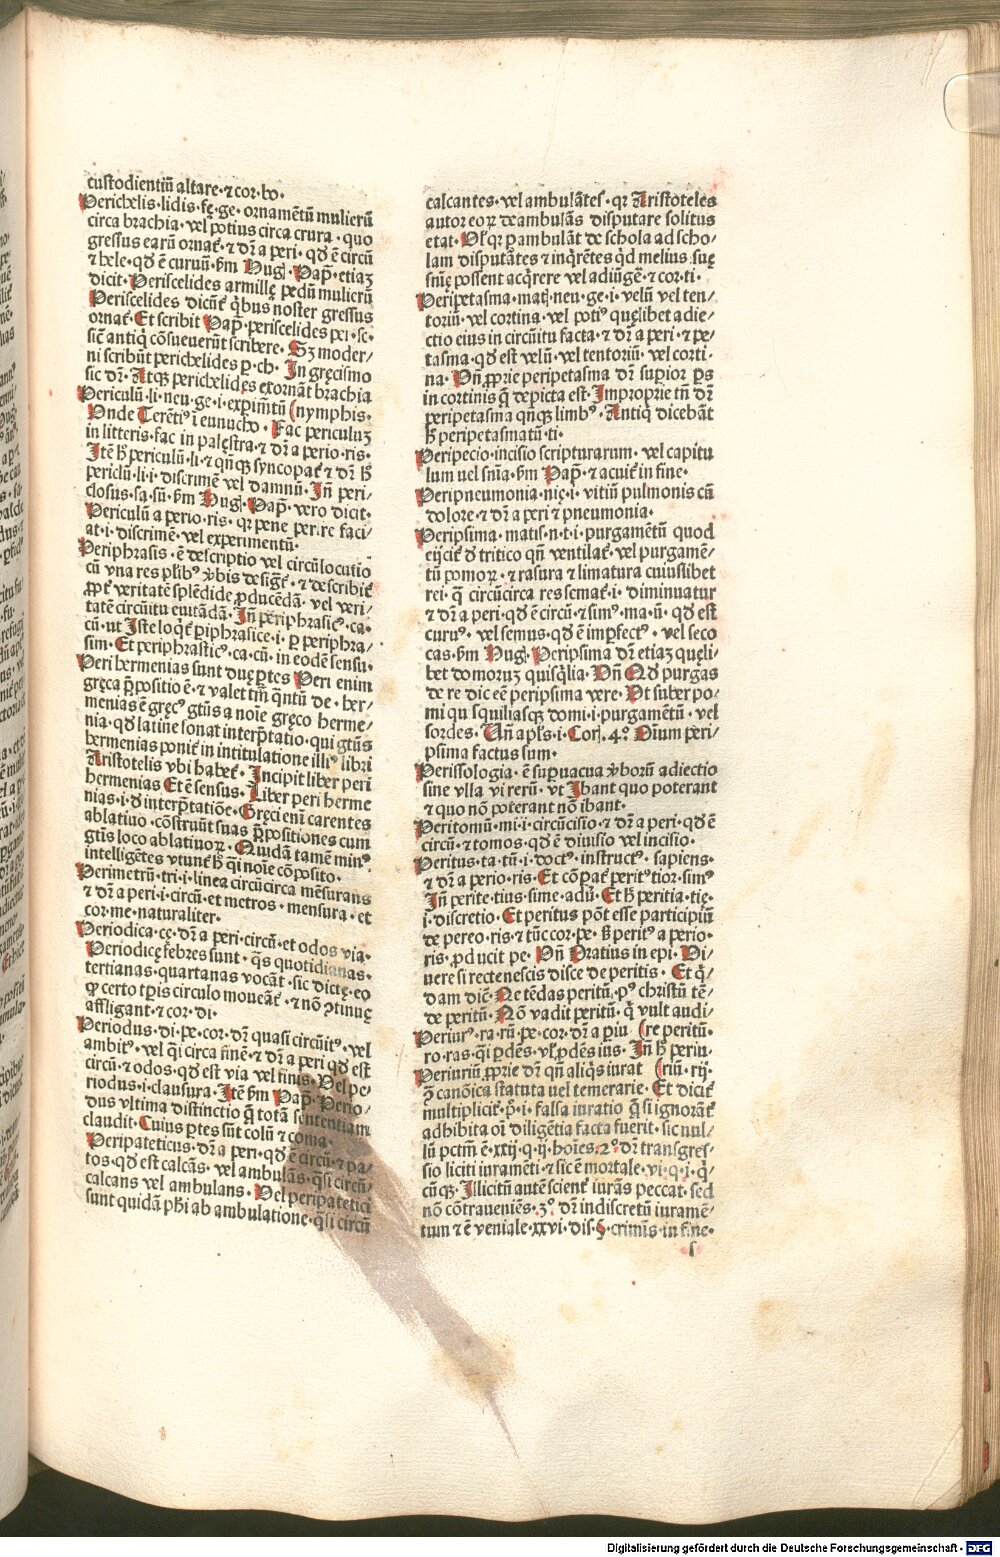 custodientiū altare·⁊ cor·bo·
Perichelis·lidis·fę·ge·ornamētū mulierū
circa brachia·vel potius circa crura·quo
gressus earū ornat᷑·⁊ dr̄ a peri·qđ ē circū
⁊ bele·qđ ē curuū·ẜm Hug̉·Pap̄·etiaꝫ
dicit·Periscelides armillę pedū mulierū
Periscelides dicūt᷑ q̇bus noster gressus
ornat᷑·Et scribit Pap̄·periscelides per·sc·
sic̄ antiq̇ cōsueuerūt scribere·Sꝫ moder/
ni scribūt perichelides ꝑ·ch·In gręcismo
sic dr̄·Atqꝫ perichelides exornāt brachia
Periculū·li·neu·ge·i·expimētū (nymphis·
Vnde Terēti⁹ ī eunucho·Fac periculuꝫ
in litteris·fac in palęstra·⁊ dr̄ a perio·ris·
Itē h̄ periculū·li·⁊ qn̄qꝫ syncopat᷑ ⁊ dr̄ h̄
periclū·li·i·discrimē vel damnū·In̄ peri/
closus·sa·sū·ẜm Hug̉·Pap̄·vero dicit·
Periculū a perio·ris·qr pene perire faci/
at·i·discrimē·vel experimentū·
Periphrasis·ē descriptio vel circūlocutio
cū vna res pl̄ib⁹ v̄bis desig̃t᷑·⁊ describit᷑
ꝓpt᷑ veritatē splēdide ꝓducēdā·vel veri/
tatē circūitu euitādā·In̄ periphrasic⁹·ca·
cū·ut Iste loqt᷑ ꝑiphrasice·i·ꝑ periphra/
sim·Et periphrastic⁹·ca·cū·in eodē sensu·
Peri hermenias sunt duę ꝑtes Peri enim
gręca p̄positio ē·⁊ valet tm̄ qn̄tū de·her/
menias ē gręc⁹ gt̄us a noīe gręco herme/
nia·qđ latine sonat interp̄tatio·qui gt̄us
hermenias ponit᷑ in intitulatione illi⁹ libri
Aristotelis vbi habet᷑·Incipit liber peri
hermenias Et ē sensus·Liber peri herme
nias·i·đ interp̄tatiōe·Gręci enī carentes
ablatiuo·cōstruūt suas p̄positiones cum
gt̄us loco ablatiuoꝝ·Quidā tamē min⁹
intelligētes vtunt᷑ h̄ q̇i noīe cōposito·
Perimetrū·tri·i·linea circūcirca mēsurans
⁊ dr̄ a peri·i·circū·et metros·mensura·et
cor·me·naturaliter·
Periodica·cę·dr̄ a peri·circū·et odos via·
Periodicę febres sunt·q̄s quotidianas·
tertianas·quartanas vocāt·sic dictę·eo
ꝙ certo tꝑis circulo moueāt᷑·⁊ nō ꝯtinuę
affligant·⁊ cor·di·
Periodus·di·pe·cor·dr̄ quasi circūit⁹·vel
ambit⁹·vel q̇i circa finē·⁊ dr̄ a peri qđ est
circū·⁊ odos·qđ est via vel finis·Vel pe/
riodus·i·clausura·Itē ẜm Pap̄·Perio/
dus vltima distinctio q̄ totā sententiam
claudit·Cuius ꝑtes sūt colū ⁊ coma·
Peripateticus·dr̄ a peri·qđ ē circū·⁊ pa/
tos·qđ est calcās·vel ambulās·q̄si circū/
calcans vel ambulans·Vel peripatetici
sunt quidā ph̄i ab ambulatione·q̄si circū
calcantes·vel ambulātes·qr Aristoteles
autor eoꝝ deambulās disputare solitus
erat·Vl̉ qr ꝑambulāt de schola ad scho/
lam disputātes ⁊ inq̇rētes q̇d melius·suę
sn̄ię possent acq̇rere vel adiūgē·⁊ cor·ti·
Peripetasma·mat̉·neu·ge·i·velū vel ten/
toriū·vel cortina·vel poti⁹ quęlibet adie/
ctio eius in circūitu facta·⁊ dr̄ a peri·⁊ pe/
tasma·qđ est velū·vel tentoriū·vel corti/
na·Vn̄ ꝓprie peripetasma dr̄ suꝑior ꝑs
in cortinis q̄ depicta est·Improprie tn̄ dr̄
peripetasma qn̄qꝫ limb⁹·Antiq̇ dicebāt
h̄ peripetasmatū·ti·
Peripecio·incisio scripturarum·vel capitu
lum uel sn̄ia·ẜm Pap̄·⁊ acuit᷑ in fine·
Peripneumonia·nię·i·vitiū pulmonis cū
dolore·⁊ dr̄ a peri ⁊ pneumonia·
Peripsima·matis·n·t·i·purgamētū quod
eijcit᷑ đ tritico qn̄ ventilat᷑·vel purgamē/
tū pomoꝝ·⁊ rasura ⁊ limatura cuiuslibet
rei·q̄ circūcirca res semat᷑·i·diminuatur
⁊ dr̄ a peri·qđ ē circū·⁊ sim⁹·ma·ū·qđ est
curu⁹·vel semus·qđ ē imꝑfect⁹·vel seco
cas·ẜm Hug̉·Peripsima dr̄ etiaꝫ quęli/
bet domoruꝫ quisq̇lia·Vn̄ Qđ purgas
de re dic eē peripsima vere·Vt suber po/
mi qu squiliasqꝫ domi·i·purgamētū·vel
sordes·Vn̄ apl̄s·i·Cor̉·4°·Oīum peri/
psima factus sum·
Perissologia·ē suꝑuacua v̄borū adiectio
sine vlla vi rerū·vt Ibant quo poterant
⁊ quo nō poterant nō ibant·
Peritomū·mi·i·circūcisio·⁊ dr̄ a peri·qđ ē
circū·⁊ tomos·qđ ē diuisio vel incisio·
Peritus·ta·tū·i·doct⁹·instruct⁹·sapiens·
⁊ dr̄ a perio·ris·Et cōpat᷑ perit⁹ tior·sim⁹
In̄ perite·tius·sime·adū·Et h̄ peritia·tię·
i·discretio·Et peritus pōt esse participiū
de pereo·ris·⁊ tūc cor·pe·ẞ perit⁹ a perio·
ris·ꝓducit pe·Vn̄ Oratius in epi·Vi/
uere si recte nescis disce de peritis·Et q̇/
dam dic̄·Ne tēdas peritū·p⁹ christū tē/
de peritū·Nō vadit peritū·q̇ vult audi/
Periur⁹·ra·rū·pe·cor·dr̄ a ꝑiu (re peritū·
ro·ras·q̇i ꝑdēs·vl̉ ꝓdēs ius·In̄ h̄ periu·
Periuriū ꝓprie dr̄ qn̄ aliq̇s iurat (riū·rij·
ꝯ̄ canōica statuta uel temerarie·Et dicit᷑
multiplicit᷑·p̄·i·falsa iuratio q̄ si ignorāt᷑
adhibita oī diligētia facta fuerit·sic nul/
lū pctm̄ ē·xxij·q·ij·hoīes·2°·dr̄ transgres/
sio liciti iuramēti·⁊ sic ē mortale·vi·q·i·q̇/
cūqꝫ·Illicitū autē scient᷑ iurās peccat·sed
nō cōtraueniēs·3°·dr̄ indiscretū iuramē/
tum ⁊ ē veniale·xxvi·dis·§·crimīs·in fine·
ſ
Digitalisierung gefördert durch die Deutsche Forschungsgemeinschaft - DFG